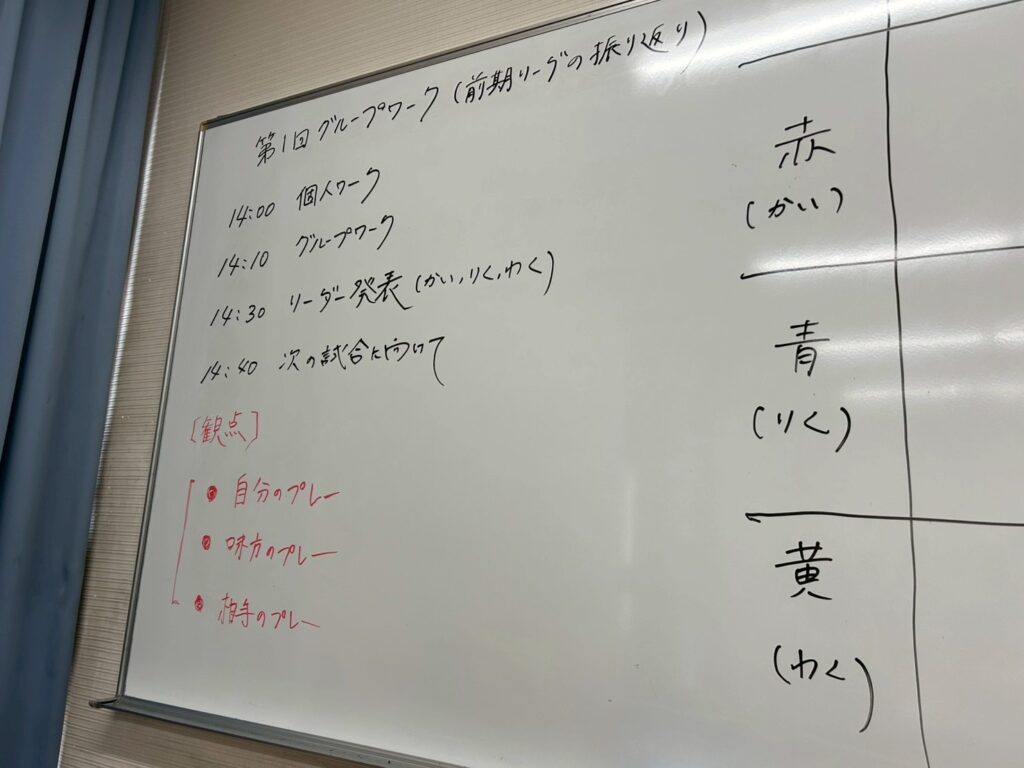 第1回 グループワーク (前期リーグの振り返り)
14:00 個人ワーク
14:10 グループワーク
14:30 リーダー発表 (かい,りく,わく)
14:40 次の試合に向けて
[観点]
● 自分のプレー
● 味方のプレー
● 相手のプレー
赤
(かい)
青
(りく)
黄
(わく)